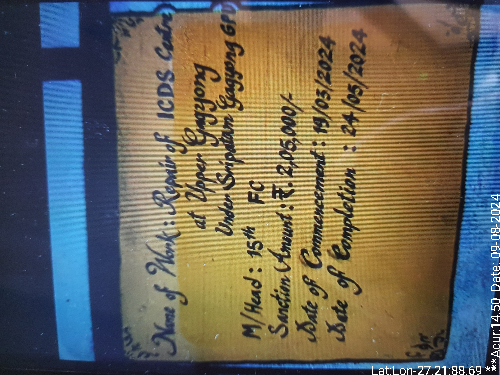 Name of Work: Repair of ICDS Center
at Upper Gagyong
Under Sripatam Gagyong GPU
M/Head: 15th FC
Sanction Amount: ₹. 2,05,000/-
Date of Commencement: 19/03/2024
Date of Completion : 24/05/2024
Lat Lon-27.21.88.69 ***Acur:14.50 Date: 09-08-2024